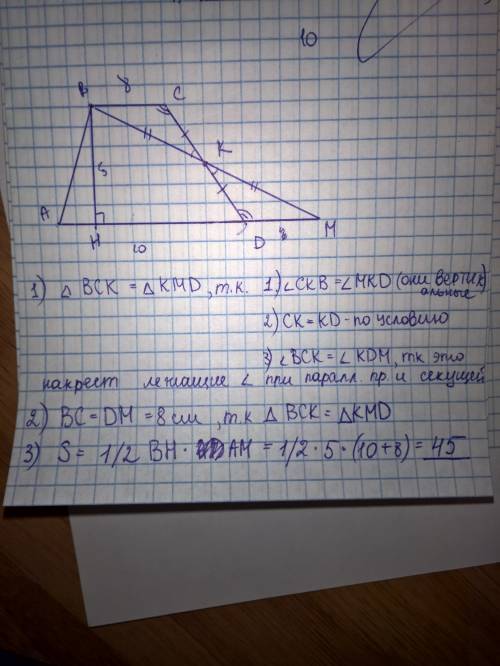 10
8
B
C
K
5
A
H
10
D
8
M
1) △ BCK = △ KMD, т.к. 1) ∠CKB = ∠MKD (они вертик
альные
2) CK = KD - по условию
3) ∠BCK = ∠KDM, тк это
накрест лежащие ∠ при паралл. пр. и секущей
2) BC = DM = 8 см, т.к △ BCK = △KMD
3) S = 1/2 BH · AM = 1/2 · 5 · (10+8) = 45